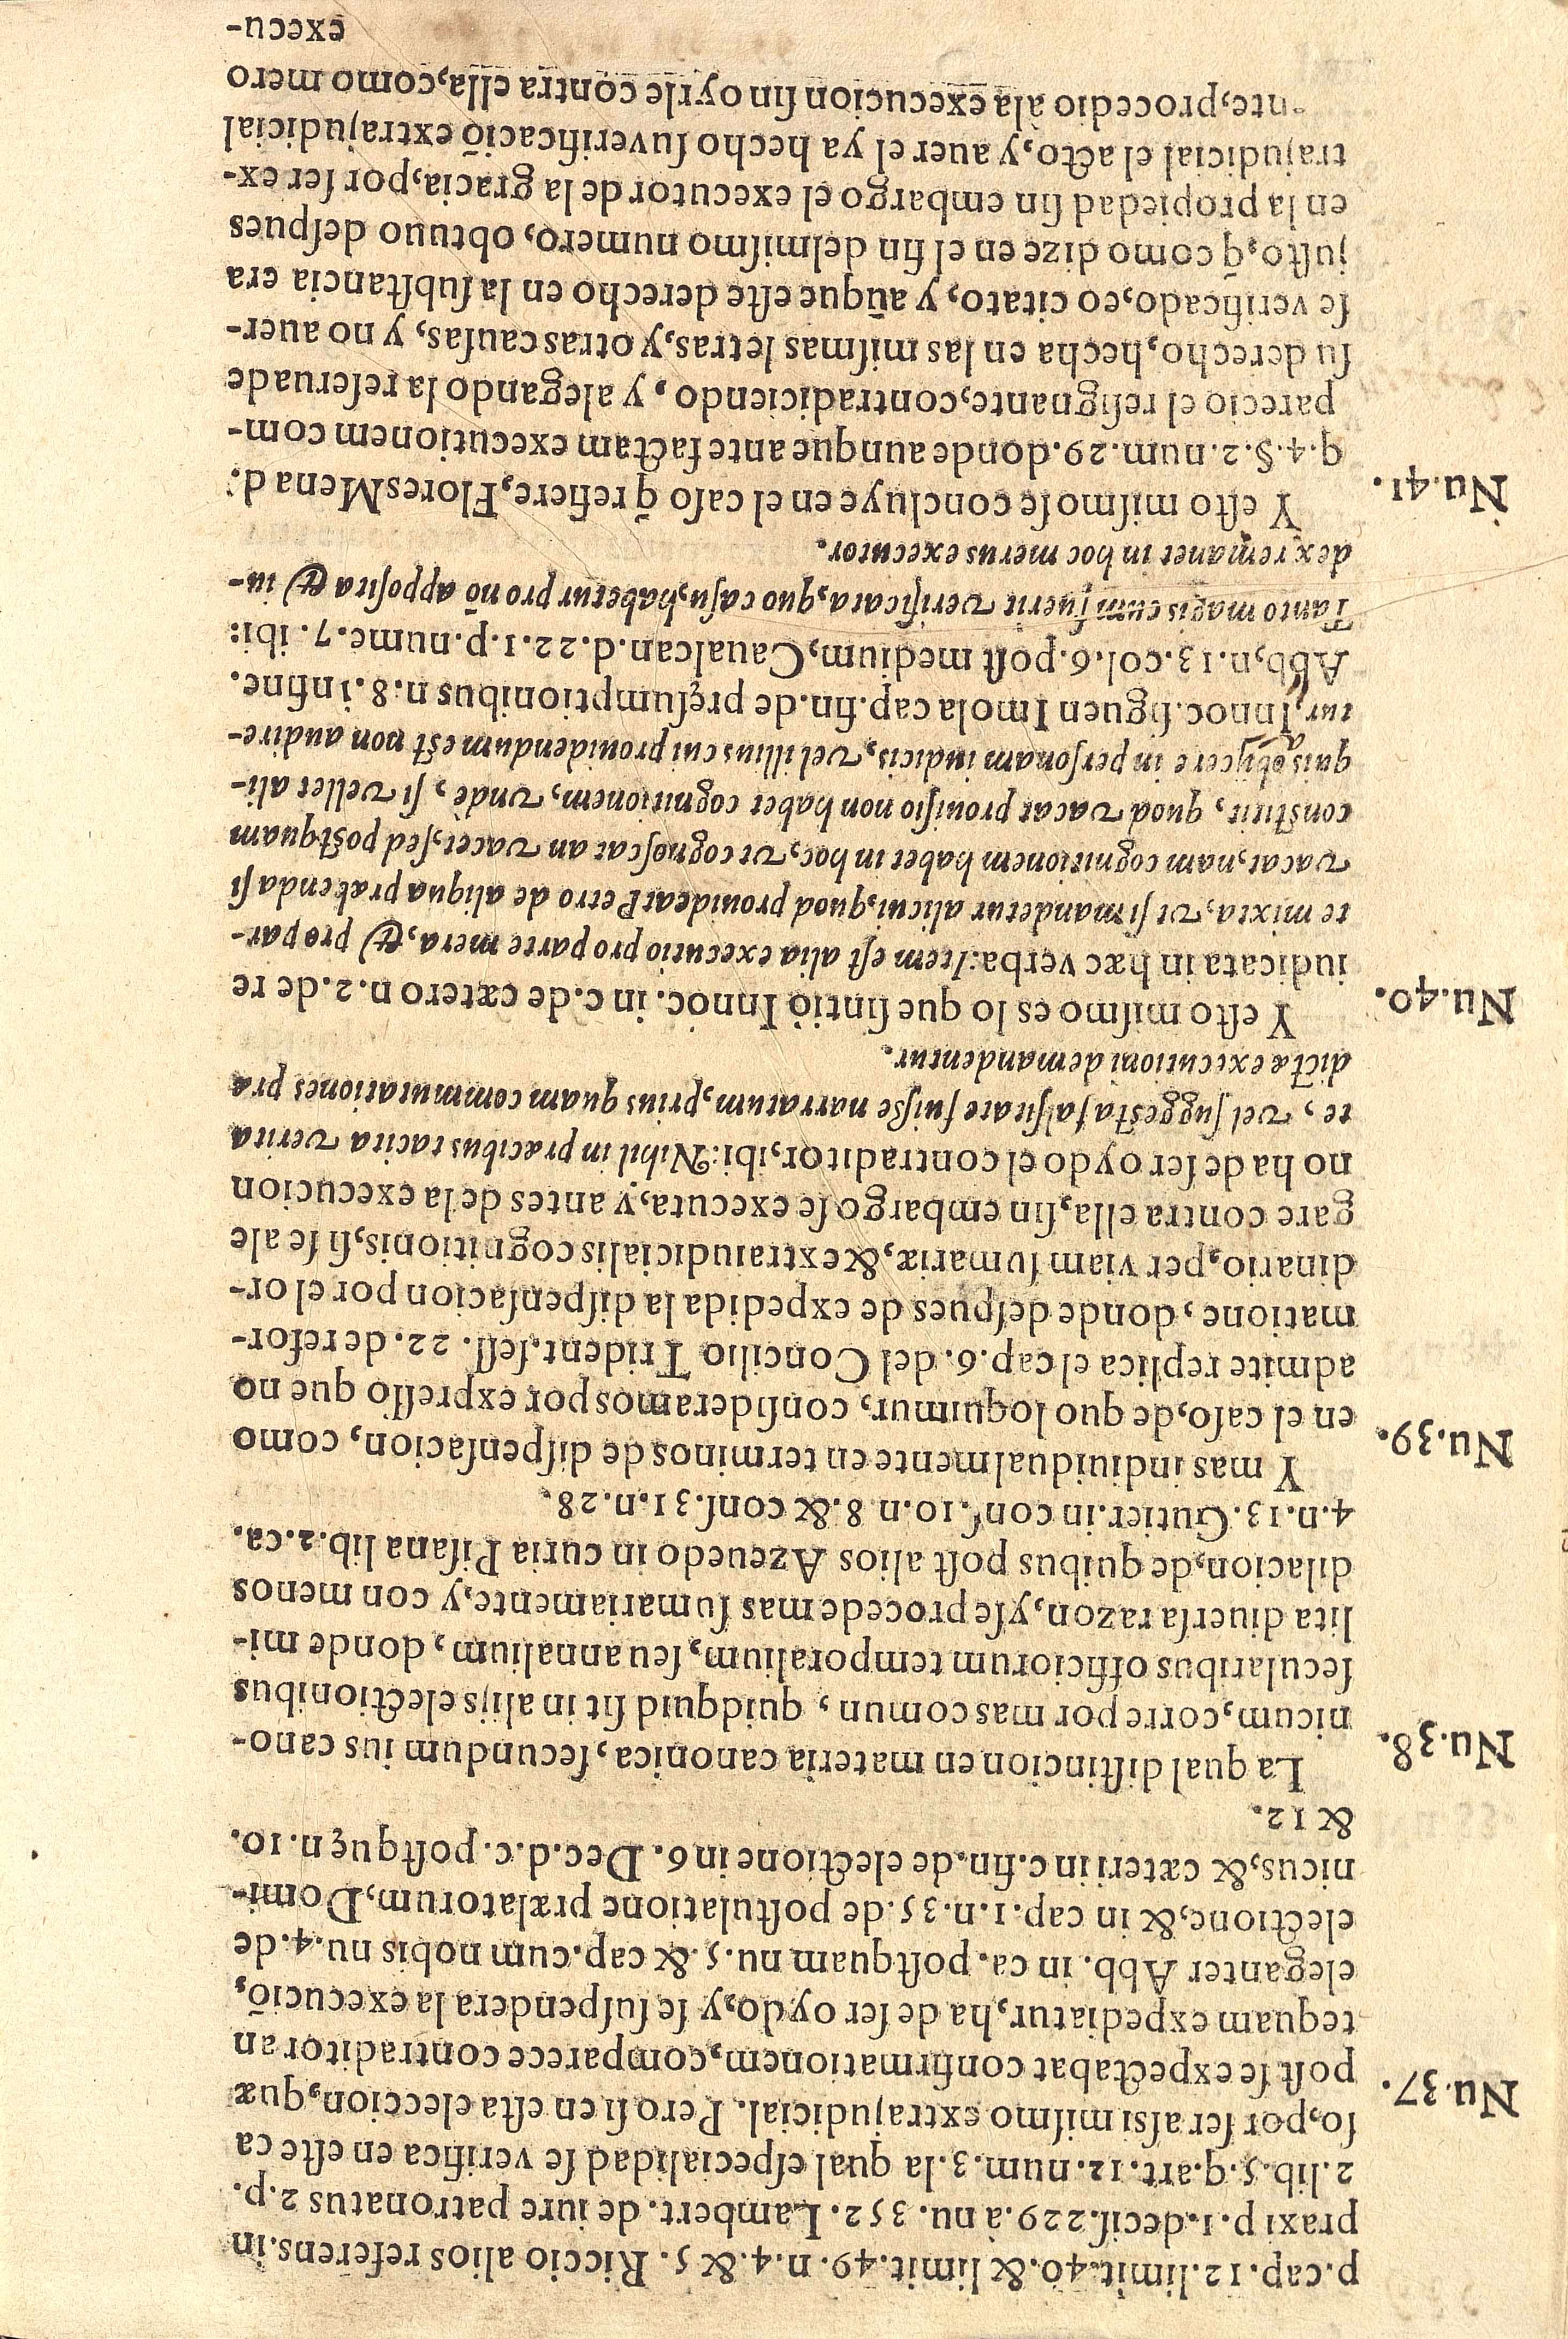 p.cap.12.limit.40.& limit.49.n.4.& 5. Riccio alios referens.in
praxi p.1.decis.229.à nu.352. Lambert. de iure patronatus 2.p.
2.lib.5.q.art.12.num.3.la qual eſpecialidad ſe verifica en eſte ca
ſo,por ſer aſsi miſmo extrajudicial. Pero ſi en eſta eleccion,quæ
Nu.37.
poſt ſe expectabat confirmationem,comparece contraditor an
tequam expediatur,ha de ſer oydo,y ſe ſuſpendera la execuciõ,
eleganter Abb. in ca. poſtquam nu.5.& cap.cum nobis nu.4.de
electione,& in cap.1.n.35.de poſtulatione prælatorum,Domi-
nicus,& cæteri in c.fin.de electione in 6. Dec.d.c.poſtquę n.10.
& 12.
Nu.38.
La qual diſtincion en materia canonica, ſecundum ius cano-
nicum,corre por mas comun, quidquid ſit in alijs electionibus
ſecularibus officiorum temporalium, ſeu annalium, donde mi-
lita diuerſa razon,y ſe procede mas ſumariamente,y con menos
dilacion,de quibus poſt alios Azeuedo in curia Piſana lib.2.ca.
4.n.13. Gutier.in conſ.10.n 8.& conſ.31.n.28.
Nu.39.
Y mas indiuidualmente en terminos de diſpenſacion, como
en el caſo,de quo loquimur, conſideramos por expreſſo que no
admite replica el cap.6. del Concilio Trident.ſeſſ. 22. de refor-
matione, donde deſpues de expedida la diſpenſacion por el or-
dinario,per viam ſumariæ,& extraiudicialis cognitionis,ſi ſe ale
gare contra ella,ſin embargo ſe executa,y antes de la execucion
no ha de ſer oydo el contraditor,ibi: Nihil in præcibus tacita verita
te, vel ſuggeſta falſitate fuiſse narratum, prius quam commutationes præ
dictæ executioni demandentur.
Nu.40.
Y eſto miſmo es lo que ſintiò Innoc. in c. de cætero n.2. de re
iudicata in hæc verba: Item eſt alia executio pro parte mera, & pro par-
te mixta, vt ſi mandetur alicui,quod prouideat Petro de aliqua præbenda ſi
vacat, nam cognitionem habet in hoc, vt cognoſcat an vacet, ſed poſtquam
conſtitit, quod vacat prouiſio non habet cognitionem, vnde, ſi vellet ali-
quis obijcere in perſonam iudicis, vel illius cui prouidendum eſt non audire-
tur, Innoc. ſiguen Imola cap.fin.de preſumptionibus n.8.in fine.
Abb,n.13.col.6.poſt medium, Caualcan.d.22.1.p.nume.7. ibi:
Tanto magis cum fuerit verificata, quo caſu,habetur pro nō appoſita & iu-
dex remanet in hoc merus executor.
Nu.41.
Y eſto miſmo ſe concluye en el caſo q̃ refiere, Flores Mena d.
q.4.§.2.num.29.donde aunque ante factam executionem com-
parecio el reſignante,contradiciendo, y alegando la reſerua de
ſu derecho,hecha en las miſmas letras,y otras cauſas, y no auer-
ſe verificado,eo citato, y aũque eſte derecho en la ſubſtancia era
juſto, q̃ como dize en el fin del miſmo numero, obtuuo deſpues
en la propiedad ſin embargo el executor de la gracia,por ſer ex-
trajudicial el acto, y auer el ya hecho ſu verificaciõ extrajudicial
procedio à la execucion ſin oyrle contra ella,como mero
execu-